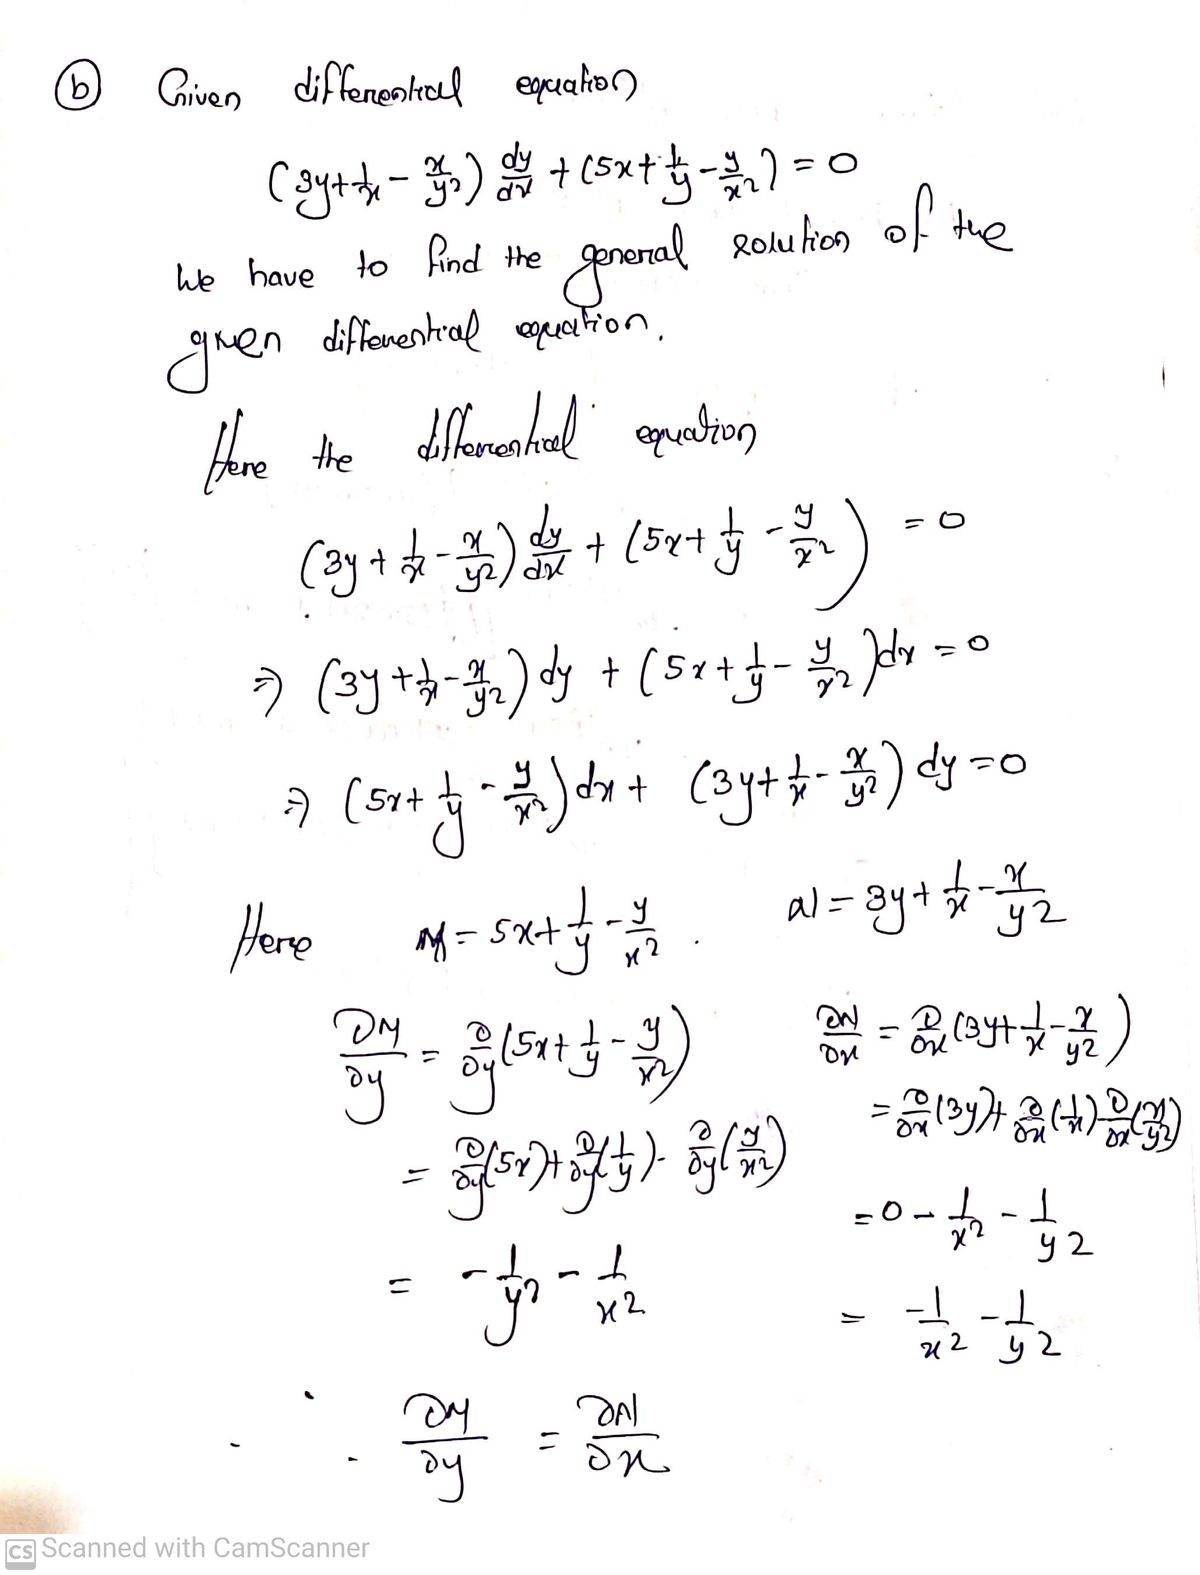 (b) Given differential equation
(3y + 1/x − x/y²) dy/dx + (5x + 1/y − y/x²) = 0
We have to find the general solution of the
given differential equation.
Here the differential equation
(3y + 1/x − x/y²) dy/dx + (5x + 1/y − y/x²) = 0
⇒ (3y + 1/x − x/y²) dy + (5x + 1/y − y/x²) dx = 0
⇒ (5x + 1/y − y/x²) dx + (3y + 1/x − x/y²) dy = 0
Here M = 5x + 1/y − y/x² . N = 3y + 1/x − x/y²
∂M/∂y = ∂/∂y (5x + 1/y − y/x²) ∂N/∂x = ∂/∂x (3y + 1/x − x/y²)
= ∂/∂y (5x) + ∂/∂y (1/y) − ∂/∂y (y/x²) = ∂/∂x (3y) + ∂/∂x (1/x) − ∂/∂x (x/y²)
= −1/y² − 1/x² = 0 − 1/x² − 1/y²
= −1/x² − 1/y²
∴ ∂M/∂y = ∂N/∂x
CS Scanned with CamScanner